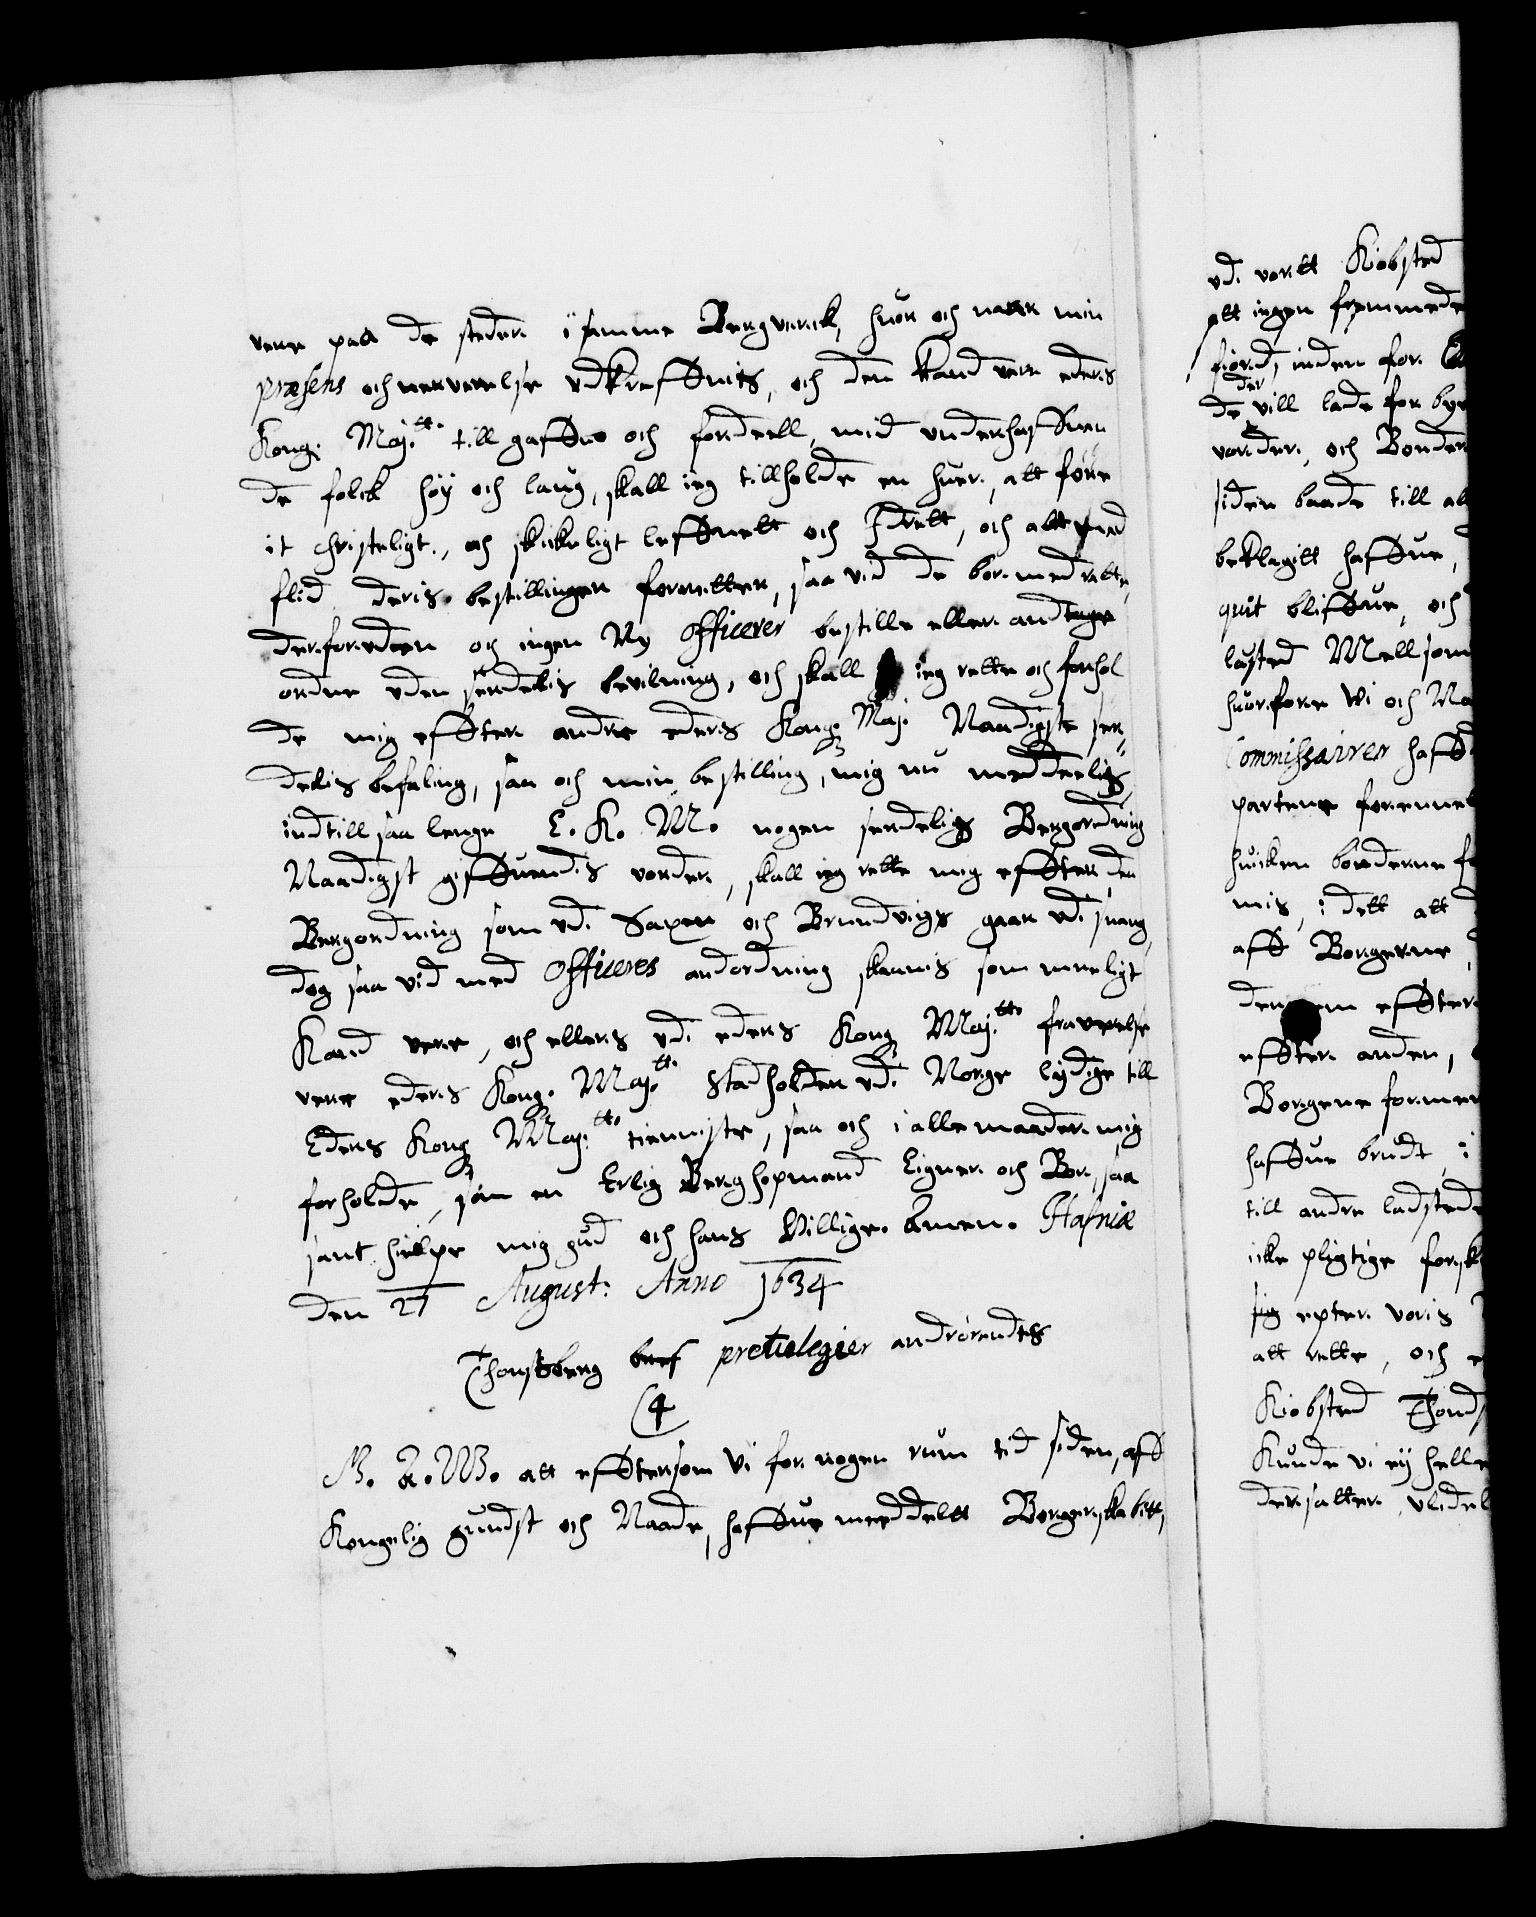 vere paa de steder i samme Bergverck, huor och naar min
præsens och nerverelse vdkreffuis, och den kand vere eders
Kong: Maj:tt. till gaffn och fordeell, mid underhaffuen
de folck höy och laug, skall ieg tillholde en huer, att före
it christeligt, och skickeligt leffnett och Idrett, och alt med
flid deris bestillinger forretter, saa vid de bör med rette,
derforuden och ingen Ny Officerer bestille eller andtage
ordne uden serdelis bevilning, och skall ieg rette och forhol
de mig effter andre eders Kong: Maj: Naadigste ser-
delis befaling, saa och min bestilling, mig nu meddeelig,
indtill saa lenge E. K. M. nogen serdelig Bergordning
Naadigst giffuendis vorder, skall ieg rette mig effter den
Bergordning som vdi Saxen och Brundvigs gaar vdi suang,
dog saa vid med Officeres andordning skaanis som mueligt
Kand vere, och ellers vdi eders Kong Maj:tt. fraverelse
vere eders Kong. Maj:tt. Stadholder vdi Norge lydige till
Eders Kong Maj:tt. tienniste, saa och i alle maader mig
forholde, som en Erlig Berghopmand Eigner och Bör, saa
sant hielpe mig gud och hans Hillige. Amen. Hafniæ
den 27 August: Anno 1634
Thonsberg pretielegier andrörendes
4
M. A. W. att efftersom Vi for nogen rum tid siden, aff
Kongelig gundst och Naade, haffue meddelt Borgerskabitt,
vdi vortt Kiöbsted
att ingen fremmede
fiord, inden for
der
de vill lade for
vorder, och Bönder
siden baade till
beklagitt haffue,
quit bliffue, och
lasted Mellsom
huorfore Vi och
Commissairer haff
partene
huicken bönderne
mis, i dett att
aff Borgerne,
effter
effter anden,
Borgere
haffue brudt, i
till andre ladstede
icke pligtige
sig epter voris
att rette, och
Kiöbsted
Kunde vi ey helle